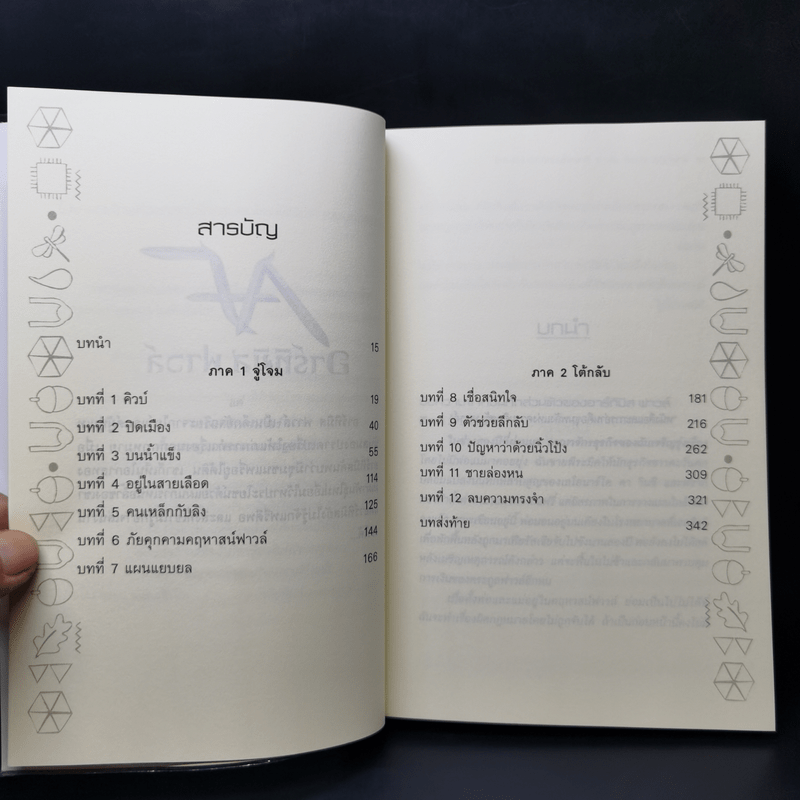 สารบัญ
บทนำ 15
ภาค 1 จู่โจม
บทที่ 1 คิวบ์ 19
บทที่ 2 ปิดเมือง 40
บทที่ 3 บนน้ำแข็ง 55
บทที่ 4 อยู่ในสายเลือด 114
บทที่ 5 คนเหล็กกับลิง 125
บทที่ 6 ภัยคุกคามคฤหาสน์ฟาวล์ 144
บทที่ 7 แผนแยบยล 166
ภาค 2 โต้กลับ
บทที่ 8 เชื่อสนิทใจ 181
บทที่ 9 ตัวช่วยลึกลับ 216
บทที่ 10 ปัญหาว่าด้วยนิ้วโป้ง 262
บทที่ 11 ชายล่องหน 309
บทที่ 12 ลบความทรงจำ 321
บทส่งท้าย 342